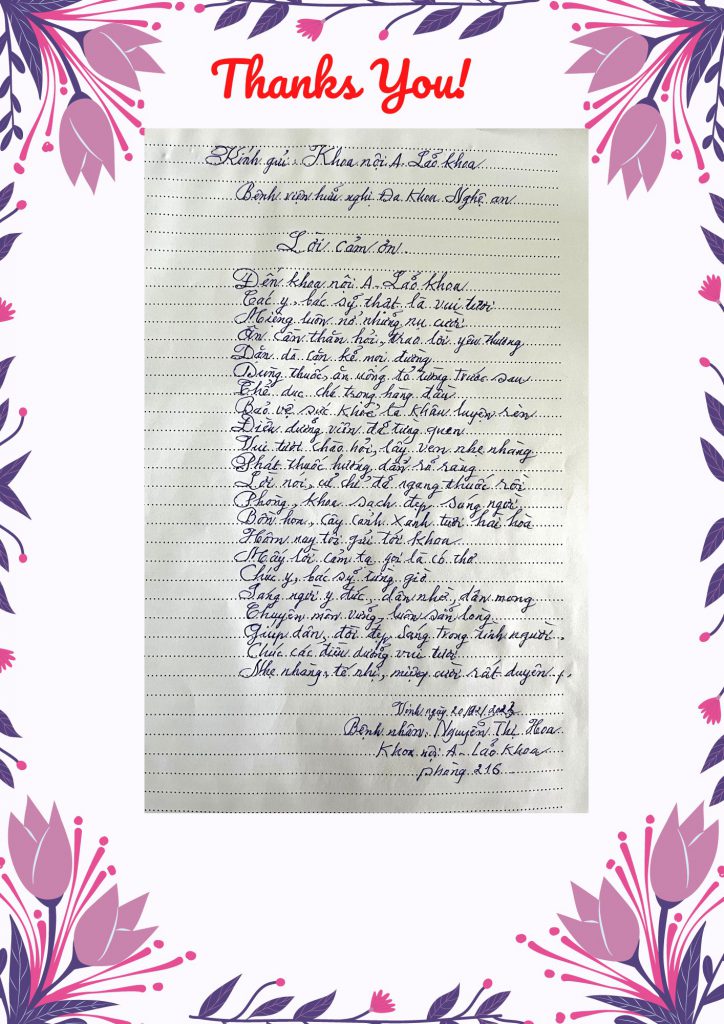 Thanks You!
Kính gửi: Khoa nội A. Lảo khoa
Bệnh viện hữu nghị Đa Khoa Nghệ an
Lời cảm ơn
Đến khoa nội A - Lảo khoa
Các y, bác sỹ thật là vui tươi
Miệng luôn nở những nụ cười
Ân cần thăn hỏi, trao lời yên thương
Dặn dò cặn kẻ mọi đường
Dùng thuốc, ăn uống tỏ tường trước sau
Thể dục chú trọng hàng đầu
Bảo vệ sức khỏe là khâu luyện rèn
Điều dưỡng viên đã từng quen
Vui tươi chào hỏi, lấy ven nhẹ nhàng
Phát thuốc hướng dẩn rỏ ràng
Lời nói, cử chỉ đã ngang thuốc rồi
Phòng, khoa sạch đẹp, sáng ngời
Bồn hoa, cây cảnh xanh tươi hài hoà
Hôm nay tôi gửi tới khoa
Mấy lời cảm tạ gọi là có thơ
Chúc y, bác sỹ từng giờ
Sáng ngời y đức, dân nhờ, dân mong
Chuyên môn vững, luôn sẵn lòng
Giúp dân, đời đẹp, sáng trong tình người.
Chúc các điều dưỡng vui tươi
Nhẹ nhàng, tế nhị, miệng cười rất duyên
Vinh ngày 20/12/2023
Bệnh nhân: Nguyễn Thị Hoa
Khoa nội A - Lảo khoa
phòng 216